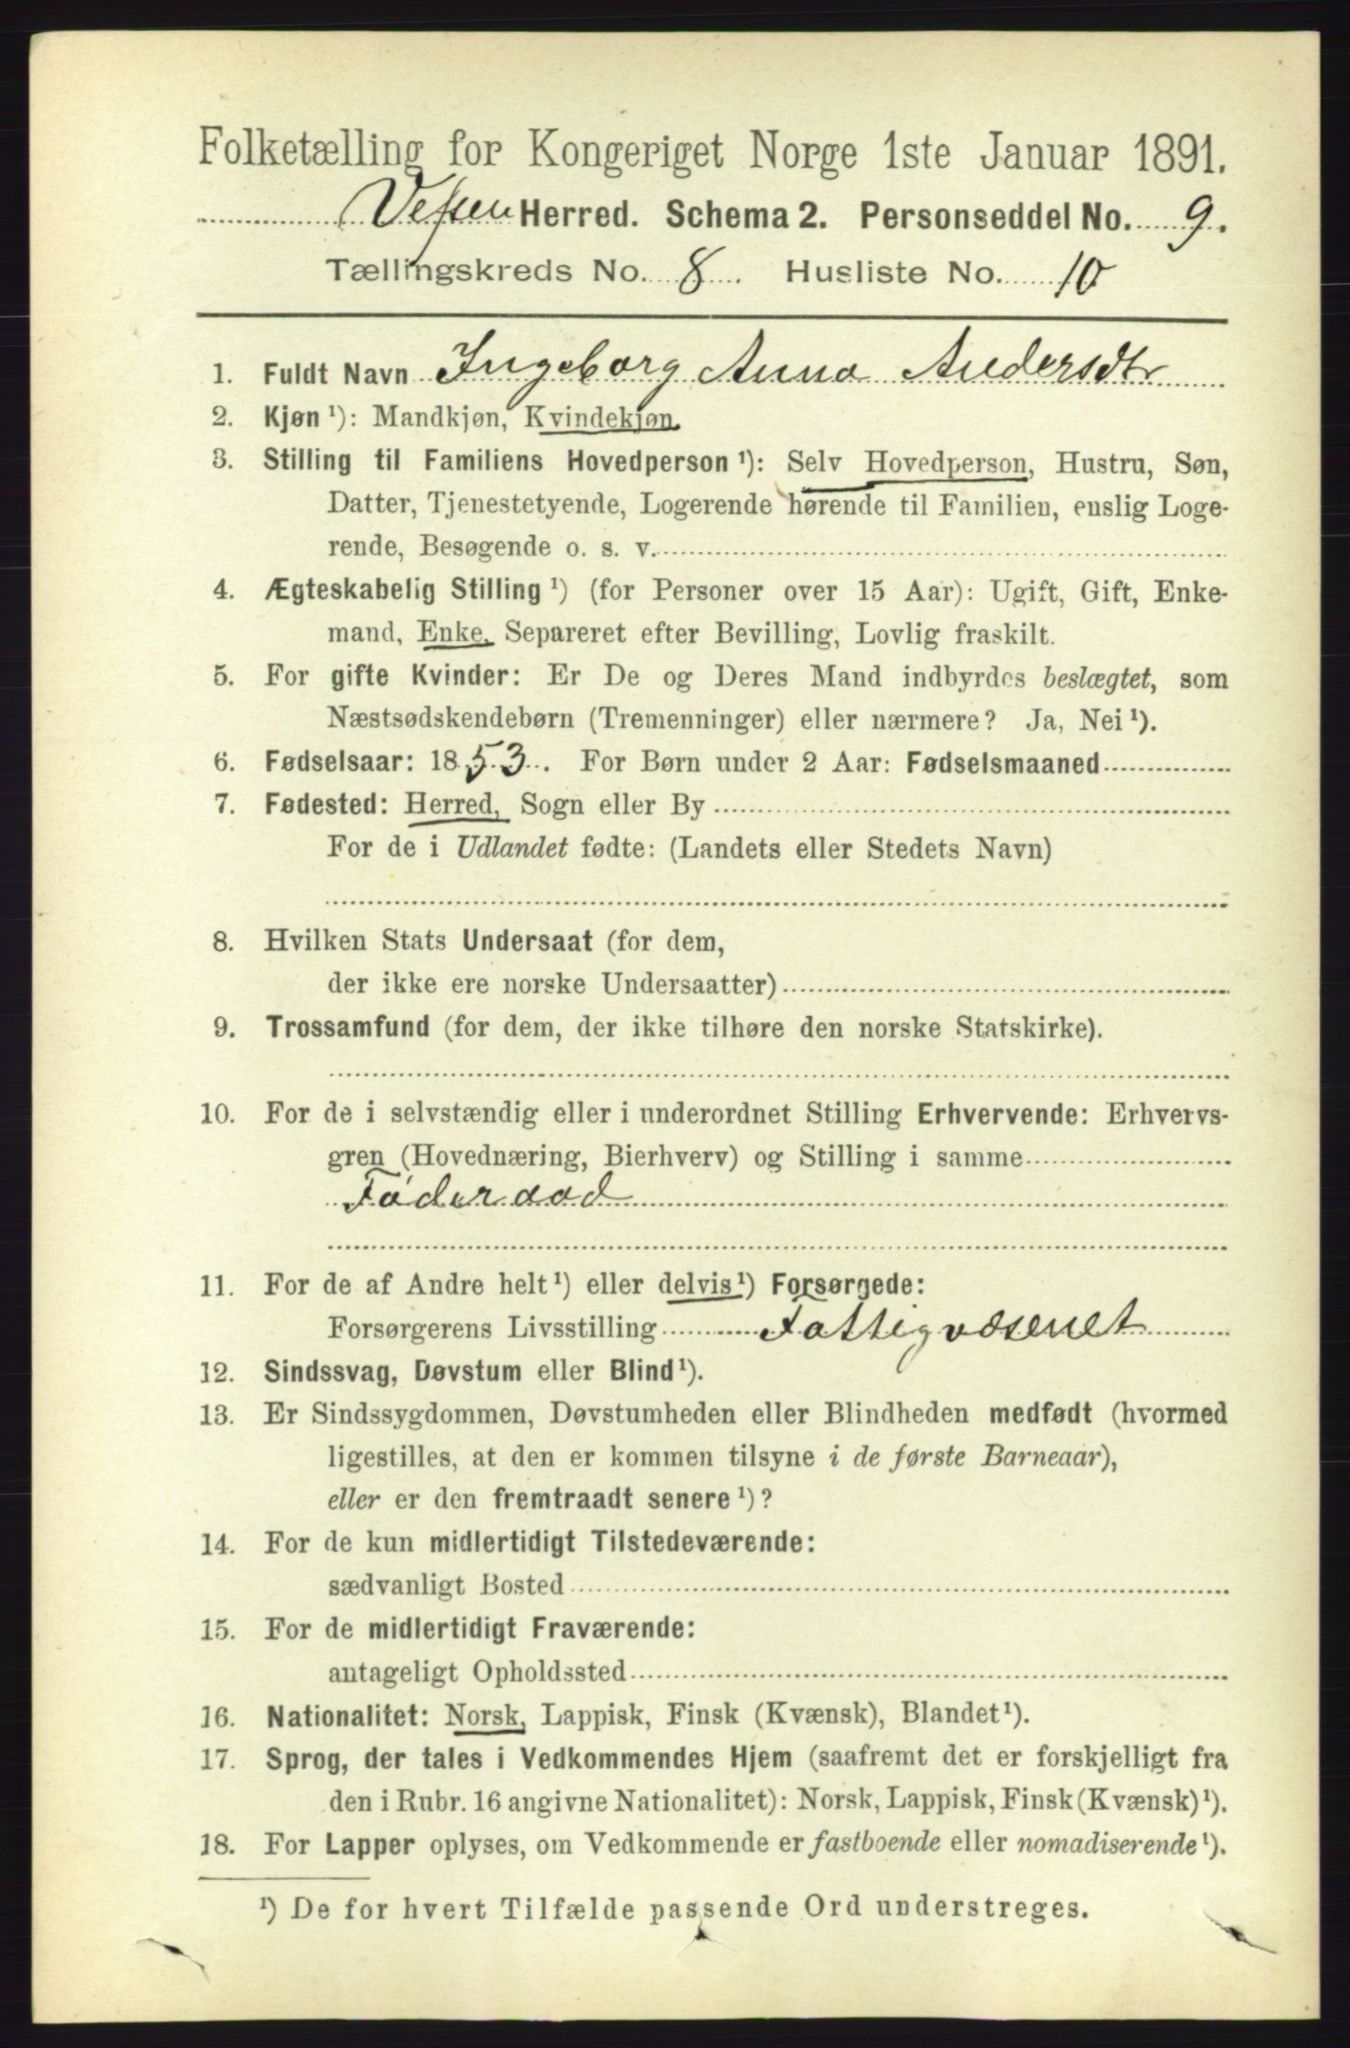 Folketælling for Kongeriget Norge 1ste Januar 1891.
Vefsen Herred. Schema 2. Personseddel No. 9.
Tællingskreds No. 8. Husliste No. 10
1. Fuldt Navn Ingeborg Anna Andersdtr
2. Kjøn ¹): Mandkjøn, Kvindekjøn.
3. Stilling til Familiens Hovedperson ¹): Selv Hovedperson, Hustru, Søn,
Datter, Tjenestetyende, Logerende hørende til Familien, enslig Loge-
rende, Besøgende o. s. v.
4. Ægteskabelig Stilling ¹) (for Personer over 15 Aar): Ugift, Gift, Enke-
mand, Enke, Separeret efter Bevilling, Lovlig fraskilt.
5. For gifte Kvinder: Er De og Deres Mand indbyrdes beslægtet, som
Næstsødskendebørn (Tremenninger) eller nærmere? Ja, Nei ¹).
6. Fødselsaar: 1853. For Børn under 2 Aar: Fødselsmaaned
7. Fødested: Herred, Sogn eller By
For de i Udlandet fødte: (Landets eller Stedets Navn)
8. Hvilken Stats Undersaat (for dem,
der ikke ere norske Undersaatter)
9. Trossamfund (for dem, der ikke tilhøre den norske Statskirke).
10. For de i selvstændig eller i underordnet Stilling Erhvervende: Erhvervs-
gren (Hovednæring, Bierhverv) og Stilling i samme
Føderaad
11. For de af Andre helt ¹) eller delvis ¹) Forsørgede:
Forsørgerens Livsstilling Fattigvæsenet
12. Sindssvag, Døvstum eller Blind ¹).
13. Er Sindssygdommen, Døvstumheden eller Blindheden medfødt (hvormed
ligestilles, at den er kommen tilsyne i de første Barneaar),
eller er den fremtraadt senere ¹)?
14. For de kun midlertidigt Tilstedeværende:
sædvanligt Bosted
15. For de midlertidigt Fraværende:
antageligt Opholdssted
16. Nationalitet: Norsk, Lappisk, Finsk (Kvænsk), Blandet ¹).
17. Sprog, der tales i Vedkommendes Hjem (saafremt det er forskjelligt fra
den i Rubr. 16 angivne Nationalitet): Norsk, Lappisk, Finsk (Kvænsk) ¹).
18. For Lapper oplyses, om Vedkommende er fastboende eller nomadiserende ¹).
¹) De for hvert Tilfælde passende Ord understreges.